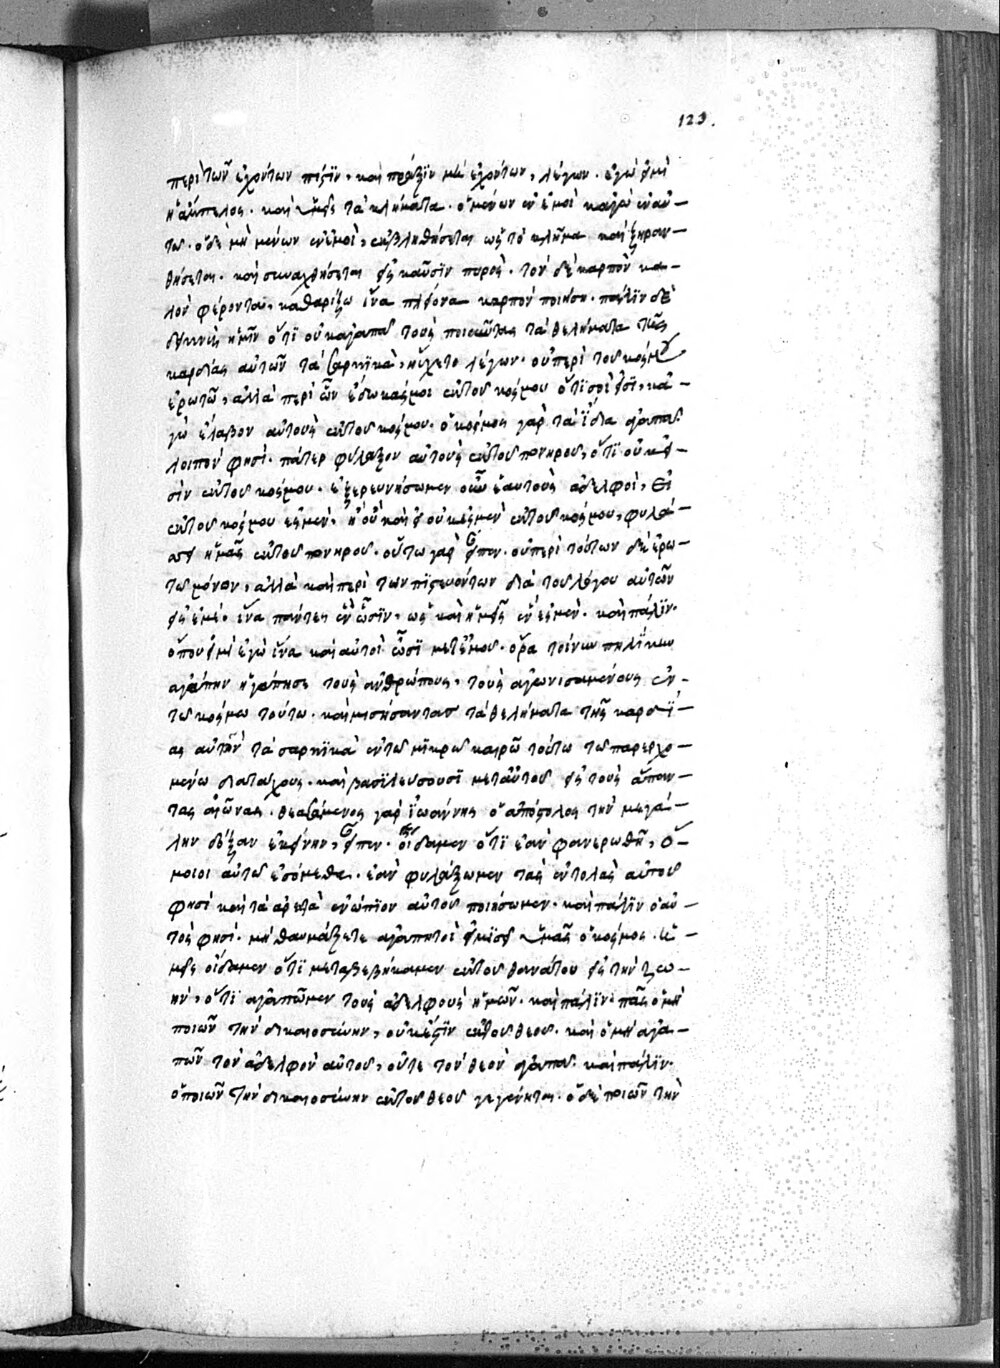 123.
περὶ τῶν ἐχόντων πίστϊν, καὶ πράξϊν μὴ ἐχόντων, λέγων· ἐγώ εἰμι
ἡ ἄμπελος· καὶ ὑμεῖς τὰ κλήματα· ὁ μένων ἐν ἐμοὶ κἀγὼ ἐν αὐ-
τῶ· ὁ δὲ μὴ μένων ἐν ἐμοὶ, ἐκβληθήσεται ὡς τὸ κλῆμα καὶ ξηραν-
θήσεται· καὶ συναχθήσεται εἰς καῦσϊν πυρός· τὸν δὲ καρπὸν κα-
λὸν φέροντα, καθαρίζω ἵνα πλείονα καρπὸν ποιήση· πάλϊν δὲ
δεικνὺς ἡμῖν ὅτϊ οὐκ ἀγαπᾶ τοὺς ποιοῦντας τὰ θελήματα τῆς
καρδίας αὐτῶν τὰ σαρκϊκὰ, ηὔχετο λέγων· οὐ περὶ τοῦ κόσμου
ἐρωτῶ, ἀλλὰ περὶ ὧν ἔδωκάς μοι ἐκ τοῦ κόσμου ὅτϊ σοί εἰσϊ, κἀ-
γὼ ἔλαβον αὐτοὺς ἐκ τοῦ κόσμου· ὁ κόσμος γὰρ τὰ ἴδια ἀγαπᾶ
λοιπὸν φησί· πάτερ φύλαξον αὐτοὺς ἐκ τοῦ πονηροῦ, ὅτϊ οὐκ εἰ-
σὶν ἐκ τοῦ κόσμου· ἐξερευνήσωμεν οὖν ἑαυτοὺς ἀδελφοὶ, εἰ
ἐκ τοῦ κόσμου ἐσμὲν, ἢ οὒ καὶ εἰ οὐκ ἐσμὲν ἐκ τοῦ κόσμου, φυλά-
σσει ἡμᾶς ἐκ τοῦ πονηροῦ· οὕτω γὰρ εἶπεν· οὐ περὶ τούτων δὲ ἐρω-
τῶ μόνον, ἀλλὰ καὶ περὶ τῶν πϊστευόντων διὰ τοῦ λόγου αὐτῶν
εἰς ἐμέ· ἵνα πάντες ἓν ὦσϊν, ὡς καὶ ἡμεῖς ἕν ἐσμεν· καὶ πάλϊν·
ὅπου εἰμὶ ἐγὼ ἵνα καὶ αὐτοὶ ὦσϊ μετ' ἐμοῦ· ὅρα τοίνυν πηλίκην
ἀγάπην ἠγάπησε τοὺς ἀνθρώπους, τοὺς ἀγωνισαμένους ἐν
τῶ κόσμω τούτω· καὶ μισήσαντας τὰ θελήματα τῆς καρδί-
ας αὐτῶν τὰ σαρκϊκὰ ἐν τῶ μϊκρῶ καιρῶ τούτω τῶ παρερχο-
μένω διὰ τάχους· καὶ βασϊλεύσουσϊ μετ' αὐτοῦ εἰς τοὺς ἅπαν-
τας αἰῶνας· θεασάμενος γὰρ ἰωάννης ὁ ἀπόστολος τὴν μεγά-
λην δόξαν ἐκείνην, εἶπεν· οἴδαμεν ὅτϊ ἐὰν φανερωθῆ, ὅ-
μοιοι αὐτῶ ἐσόμεθα· ἐὰν φυλάξωμεν τὰς ἐντολὰς αὐτοῦ
φησὶ καὶ τὰ ἀρεστὰ ἐνώπϊον αὐτοῦ ποιήσωμεν· καὶ πάλϊν ὁ αὐ-
τός φησί· μὴ θαυμάζετε ἀγαπητοὶ εἰ μϊσεῖ ὑμᾶς ὁ κόσμος· ἡ-
μεῖς οἴδαμεν ὅτϊ μεταβεβήκαμεν ἐκ τοῦ θανάτου εἰς τὴν ζω-
ὴν, ὅτϊ ἀγαπῶμεν τοὺς ἀδελφοὺς ἡμῶν· καὶ πάλϊν· πᾶς ὁ μὴ
ποιῶν τὴν δικαιοσύνην, οὐκ ἔστϊν ἐκ τοῦ θεοῦ· καὶ ὁ μὴ ἀγα-
πῶν τὸν ἀδελφὸν αὐτοῦ, οὔτε τὸν θεὸν ἀγαπᾶ· καὶ πάλϊν·
ὁ ποιῶν τὴν δικαιοσύνην ἐκ τοῦ θεοῦ γεγένηται· ὁ δὲ ποιῶν τὴν